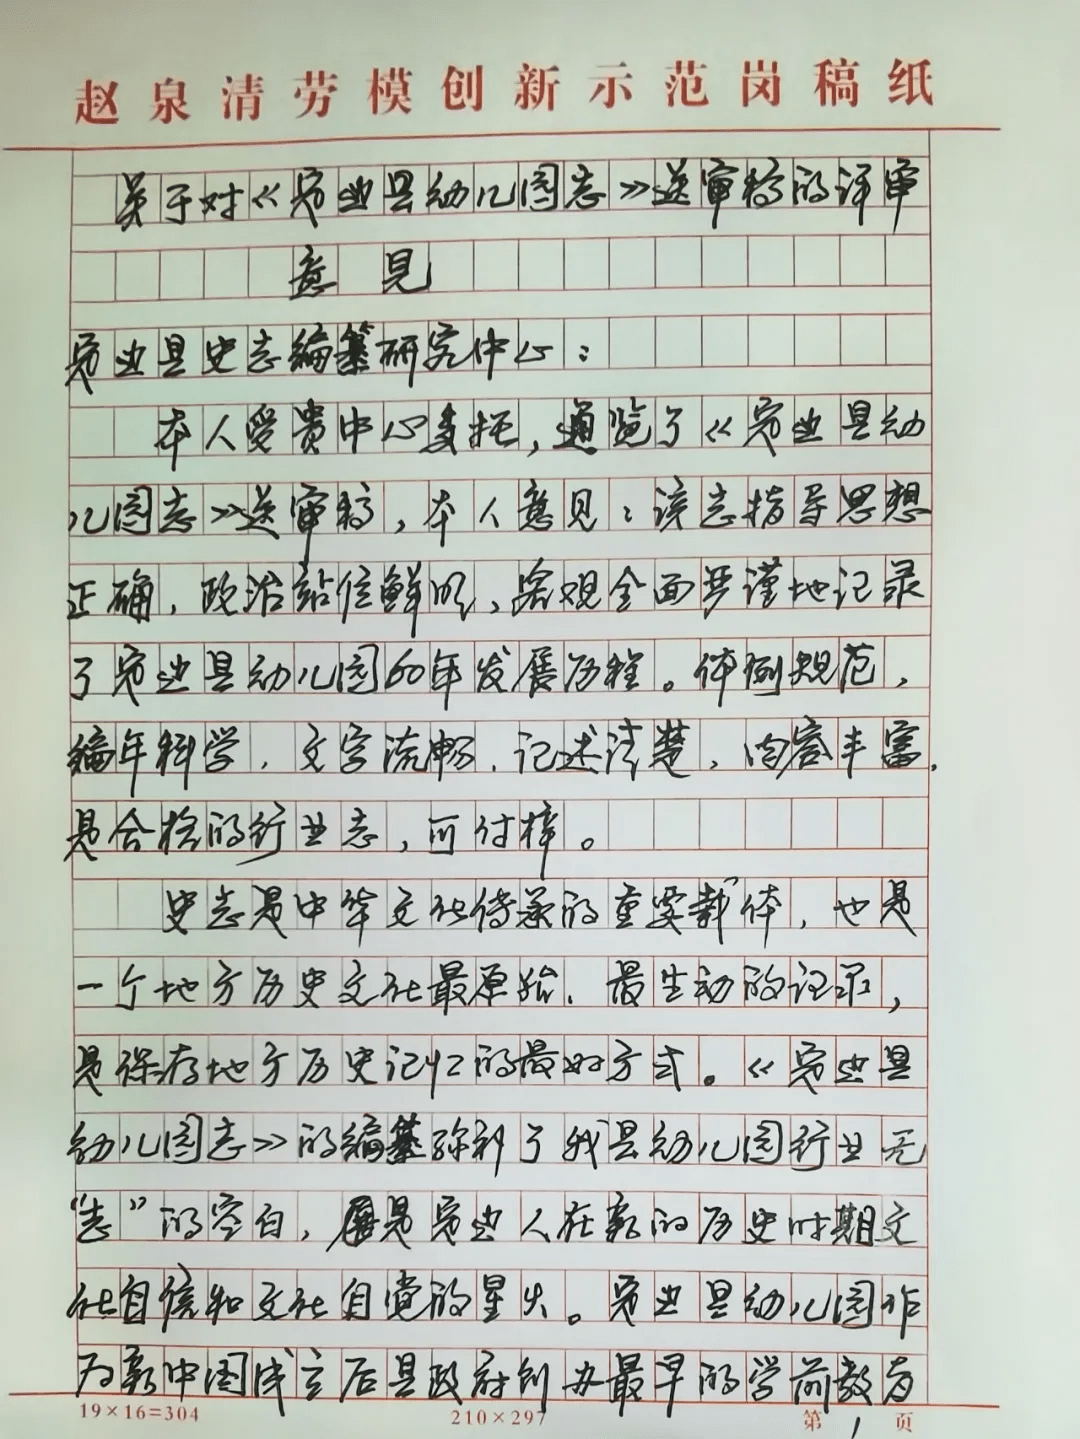 赵泉清劳模创新示范岗稿纸
关于对《定边县幼儿园志》送审稿的评审
意见
定边县史志编纂研究中心：
本人受贵中心委托，通览了《定边县幼
儿园志》送审稿，本人意见：该志指导思想
正确，政治站位鲜明，客观全面严谨地记录
了定边县幼儿园60年发展历程。体例规范，
编年科学，文字流畅，记述清楚，内容丰富，
是合格的行业志，可付梓。
史志是中华文化传承的重要载体，也是
一个地方历史文化最原始、最生动的记录，
是保存地方历史记忆的最好方式。《定边县
幼儿园志》的编纂弥补了我县幼儿园行业无
“志”的空白，是定边人在新的历史时期文
化自信和文化自觉的星火。定边县幼儿园作
为新中国成立后县政府创办最早的学前教育
19×16=304 210×297 第1页